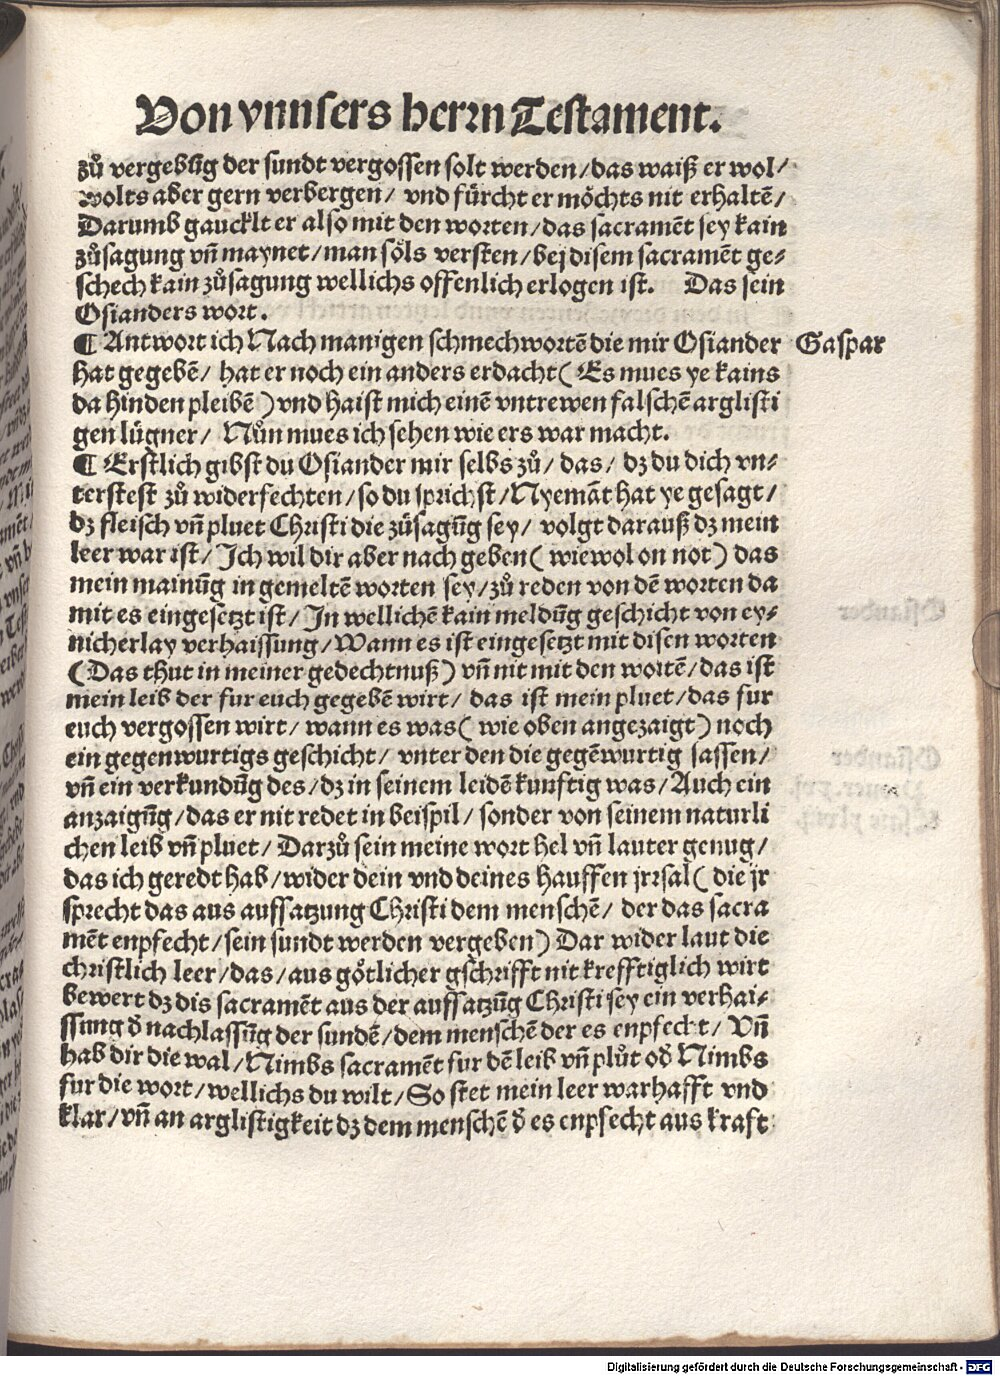 Von vnnsers herrn Testament.
zů vergebūg der sundt vergossen solt werden/das waiß er wol/
wolts aber gern verbergen/ vnd fürcht er möchts nit erhaltē/
Darumb gaucklt er also mit den worten/das sacramēt sey kain
zůsagung vn̄ maynet/man söls versten/bej disem sacramēt ge⸗
schech kain zůsagung wellichs offenlich erlogen ist. Das sein
Osianders wort.
¶ Antwort ich Nach manigen schmechwortē die mir Osiander Gaspar
hat gegebē/ hat er noch ein anders erdacht( Es mues ye kains
da hinden pleibē )vnd haist mich einē vntrewen falschē arglisti
gen lügner/ Nůn mues ich sehen wie ers war macht.
¶ Erstlich gibst du Osiander mir selbs zů/ das/ dz du dich vn⸗
terstest zů widerfechten/so du sprichst/Nyemāt hat ye gesagt/
dz fleisch vn̄ pluet Christi die zůsagūg sey/ volgt darauß dz mein
leer war ist/ Ich wil dir aber nach geben( wiewol on not) das
mein mainūg in gemeltē worten sey/zů reden von dē worten da
mit es eingesetzt ist/ In wellichē kain meldūg geschicht von ey⸗
nicherlay verhaissung/Wann es ist eingesetzt mit disen worten
(Das thut in meiner gedechtnuß) vn̄ nit mit den wortē/das ist
mein leib der fur euch gegebē wirt/ das ist mein pluet/das fur
euch vergossen wirt/ wann es was( wie oben angezaigt) noch
ein gegenwurtigs geschicht/ vnter den die gegēwurtig sassen/
vn̄ ein verkundūg des/dz in seinem leidē kunftig was/Auch ein
anzaigūg/das er nit redet in beispil/sonder von seinem naturli
chen leib vn̄ pluet/ Darzů sein meine wort hel vn̄ lauter genug/
das ich geredt hab/wider dein vnd deines hauffen jrrsal( die jr
sprecht das aus auffsatzung Christi dem menschē/ der das sacra
mēt enpfecht/sein sundt werden vergeben) Dar wider laut die
christlich leer/das/aus götlicher gschrifft nit krefftiglich wirt
bewert dz dis sacramēt aus der auffsatzūg Christi sey ein verhai⸗
ssung d̄ nachlassūg der sundē/dem menschē der es enpfecht/ Vn̄
hab dir die wal/Nimbs sacramēt fur dē leib vn̄ plůt od̄ Nimbs
fur die wort/wellichs du wilt/So stet mein leer warhafft vnd
klar/vn̄ an arglistigkeit dz dem menschē d̄ es enpfecht aus kraft
Digitalisierung gefördert durch die Deutsche Forschungsgemeinschaft - DFG